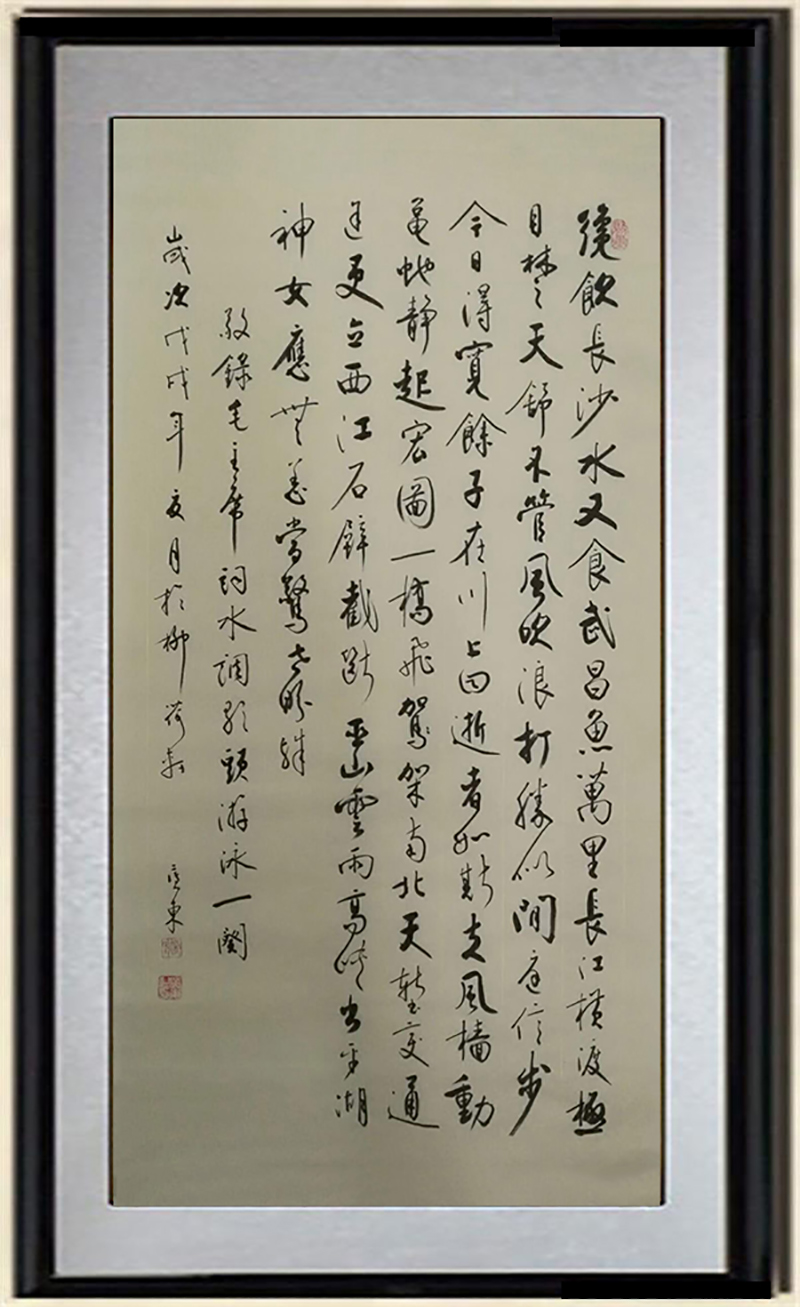 纔飲長沙水又食武昌魚萬里長江橫渡極
目楚天舒不管風吹浪打勝似間庭信步
今日得寬餘子在川上曰逝者如斯夫風檣動
龜蛇靜起宏圖一橋飛駕架南北天塹变通
途更立西江石壁截斷巫山雲雨高峽出平湖
神女應無恙當驚世界殊
敬錄毛主席詞水調歌頭游泳一闋
歲次戊戌年夏月於柳荷軒
東